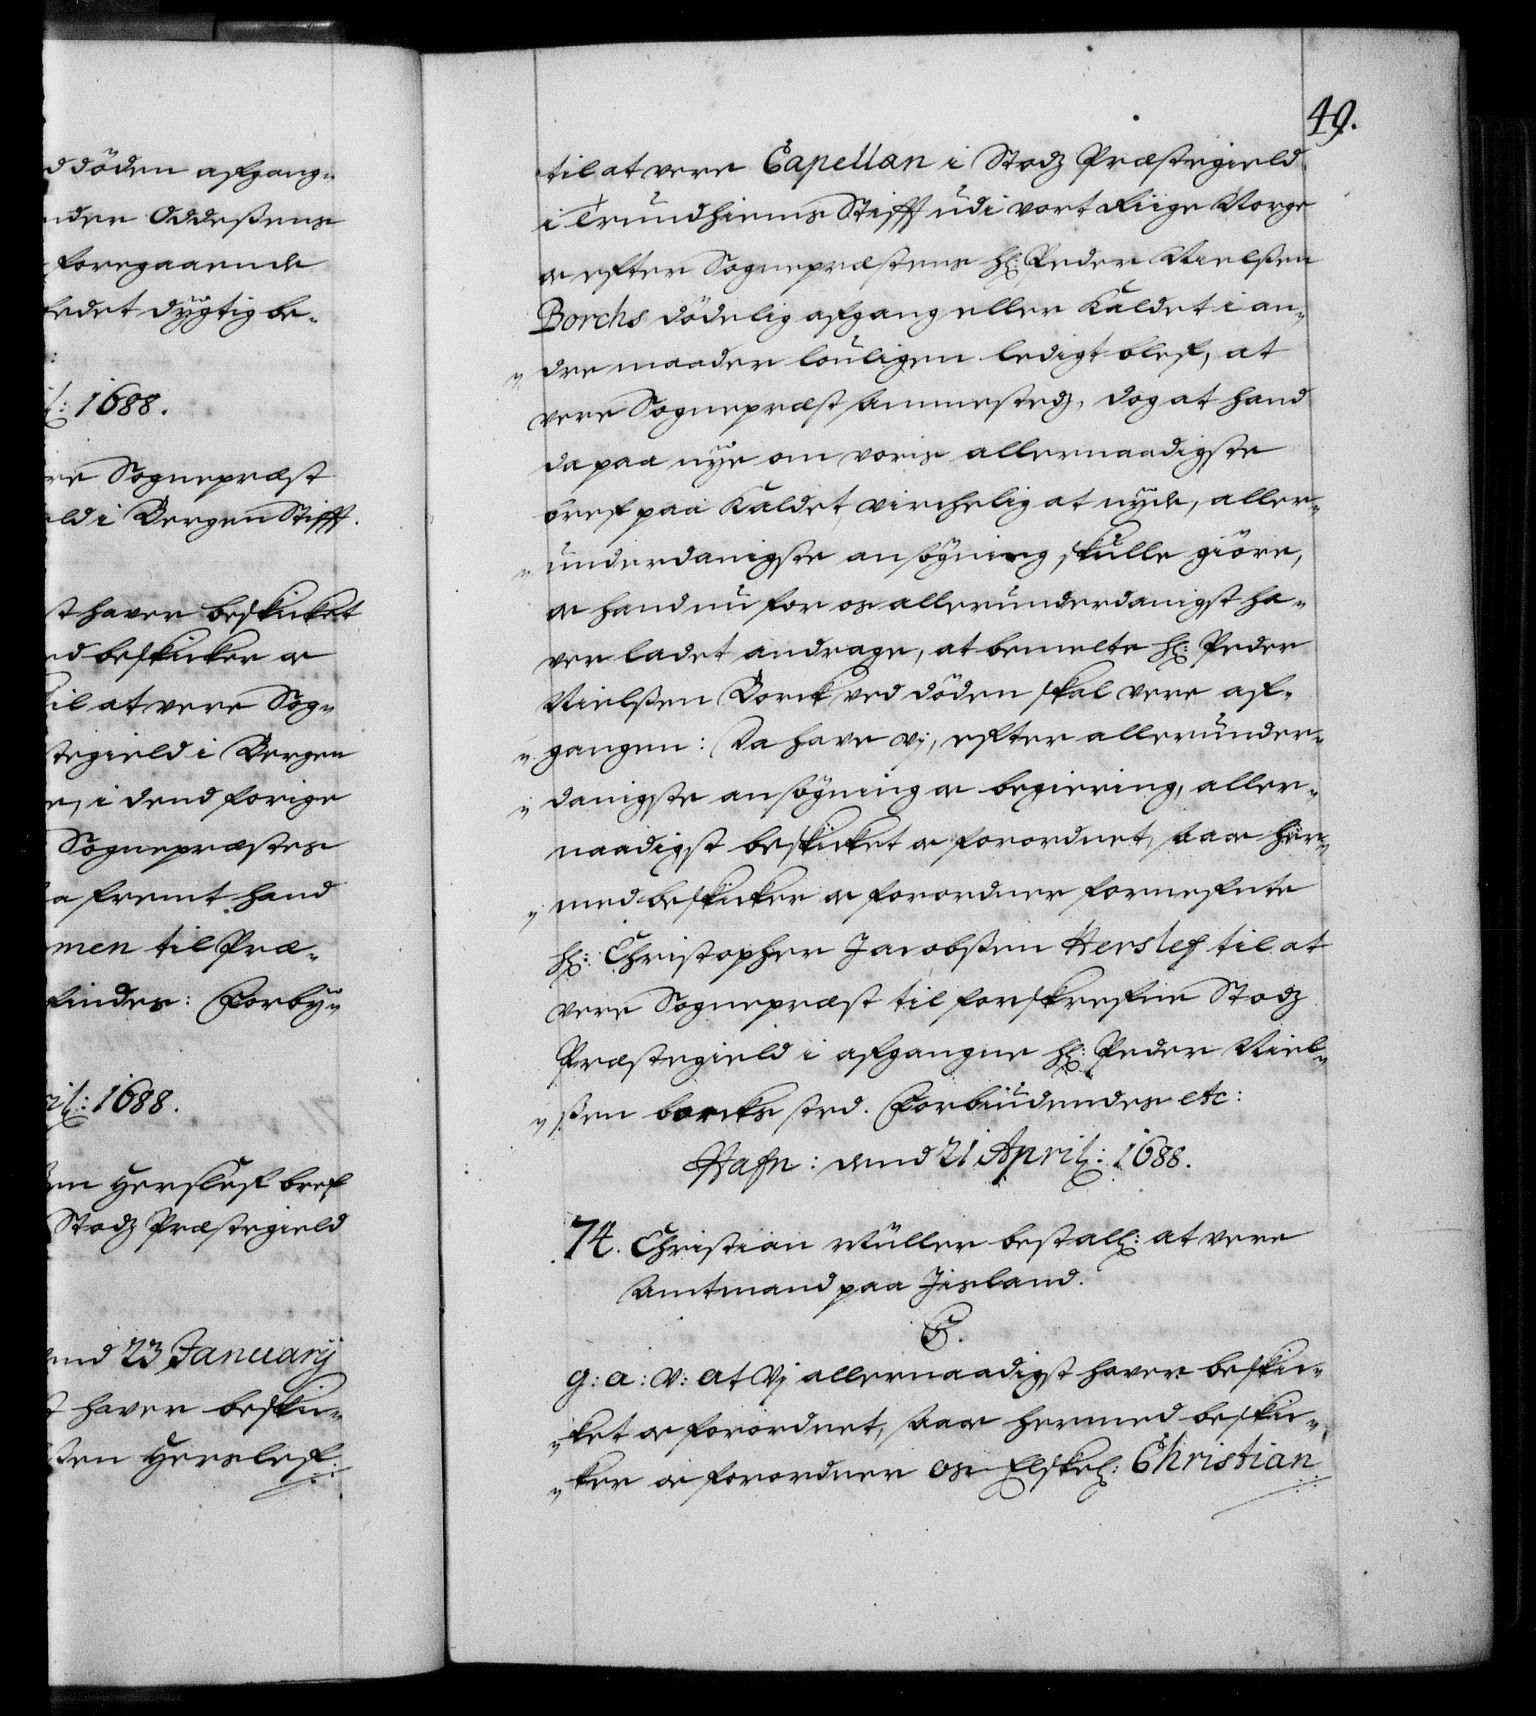 d döden afgang-
nder Oddeßens
foregaaende
edet dygtig be-
:
l: 1688.
re Sognepræst
eld i Bergen Stifft.
st haver beskicket
ed beskicker oc
til at vere Sog-
tegield i Bergen
e, i dend forige
Sognepræstes
a fremt hand
men til Præ-
findes: Forby-
ril: 1688.
en Herslef bref
Stodz Præstegield
end 23 Januarij
t haver beskic-
ßen Herslef
49.
til at vere Capellan i Stodz Præstegield
i Trundhiems Stifft udi vort Riige Norge
oc efter Sognepræstens Hr: Peder Nielßen
Borchs dödelig afgang eller Kaldet i an-
dre maader louligen ledigt blef, at
vere Sognepræst sammestedz, dog at hand
da paa nye om voris allernaadigste
bref paa Kaldet virchelig at nyde, aller-
underdanigste ansögning skulle giöre,
oc hand nu for os allerunderdanigst ha-
ver ladet andrage, at bemelte Hr: Peder
Nielßen Borck ved döden skal vere af-
gangen: Da have vi, efter allerunder-
danigste ansögning oc begiering, aller-
naadigst beskicket oc forordnet, saa oc her-
med beskicker oc forordner fornefnte
Hr: Christopher Jacobßen Herslef til at
vere Sognepræst til forskrefne Stodz
Præstegield i afgangne Hr: Peder Niel-
ßen borcks sted. Forbiudendes etc:
Hafn: dend 21 April: 1688.
74. Christian Müller bestall: at vere
Amtmand paa Jisland.
C5.
G: a: V: at Vi allernaadigst haver beskic-
ket oc forordnet, saa oc hermed beskic-
ker oc forordner os Elskel: Christian